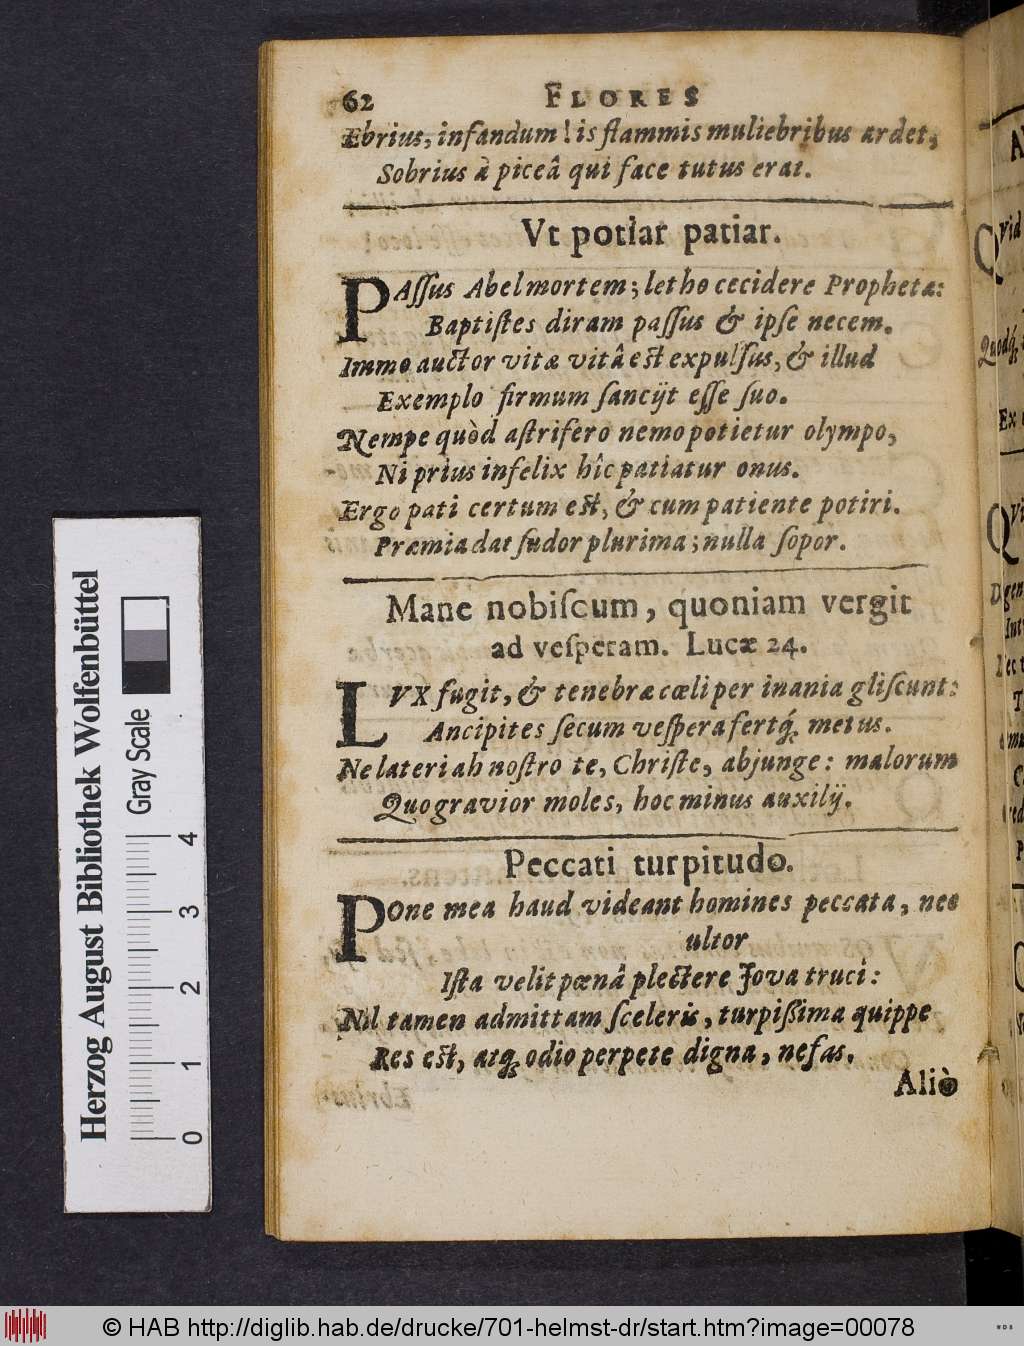 62 FLORES
Ebrius, infandum! is flammis muliebribus ardet,
Sobrius à piceâ qui face tutus erat.
Vt potiar patiar.
PAſſus Abel mortem; letho cecidere Prophetæ:
Baptiſtes diram paſſus & ipſe necem.
Immo auctor vitæ vitâ eſt expulſus, & illud
Exemplo firmum ſancijt eſſe ſuo.
Nempe quòd aſtrifero nemo potietur olympo,
Ni prius infelix hîc patiatur onus.
Ergo pati certum eſt, & cum patiente potiri.
Præmia dat ſudor plurima; nulla ſopor.
Mane nobiſcum, quoniam vergit
ad veſperam. Lucæ 24.
LVX fugit, & tenebræ cœli per inania gliſcunt:
Ancipites ſecum veſpera fertq́; metus.
Ne lateri ah noſtro te, Chriſte, abjunge: malorum
Quo gravior moles, hoc minus auxilij.
Peccati turpitudo.
POne mea haud videant homines peccata, nec
ultor
Iſta velit pœnâ plectere Jova truci:
Nil tamen admittam ſceleris, turpißima quippe
Res eſt, atq; odio perpete digna, nefas.
Aliò
Herzog August Bibliothek Wolfenbüttel
Gray Scale
0 1 2 3 4
© HAB http://diglib.hab.de/drucke/701-helmst-dr/start.htm?image=00078